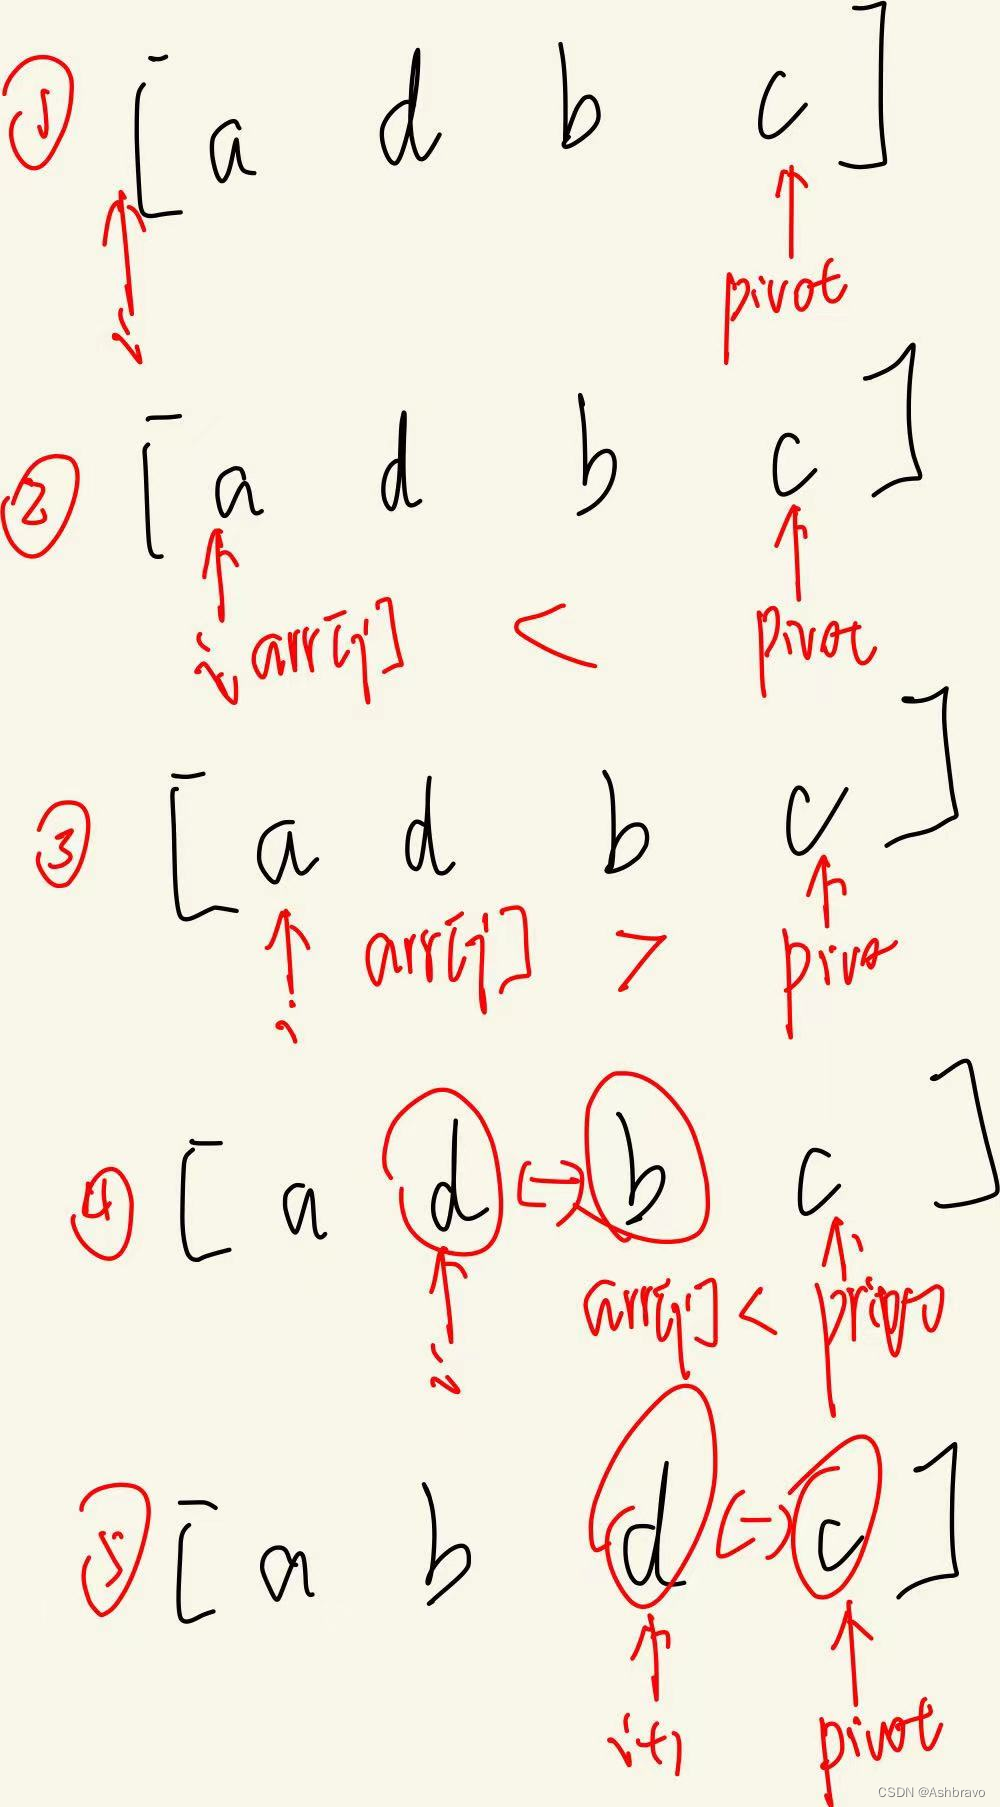 ① [ a d b c ]
i pivot
② [ a d b c ]
i arr[j] < pivot
③ [ a d b c ]
i arr[j] > pivo
④ [ a d <-> b c ]
i arr[j] <
⑤ [ a b d <-> c ]
i+1 pivot
CSDN @Ashbravo